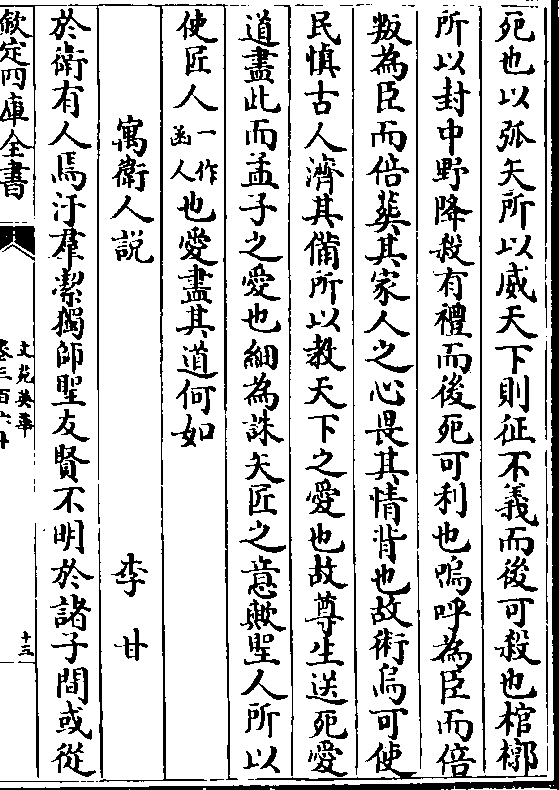 死也以弧矢所以威天下則征不義而後可殺也棺槨
所以封中野降殺有禮而後死可利也嗚呼為臣而倍
叛為臣而倍葬其家人之心畏其情背也故術烏可使
民慎古人濟其備所以教天下之愛也故尊生送死愛
道盡此而孟子之愛也細為誅矢匠之意歟聖人所以
使匠人一作函人也愛盡其道何如
寓衛人説 李甘
於衛有人焉汙羣潔獨師聖友賢不明於諸子間或從
欽定四庫全書
文苑英華
卷三百六十
十三